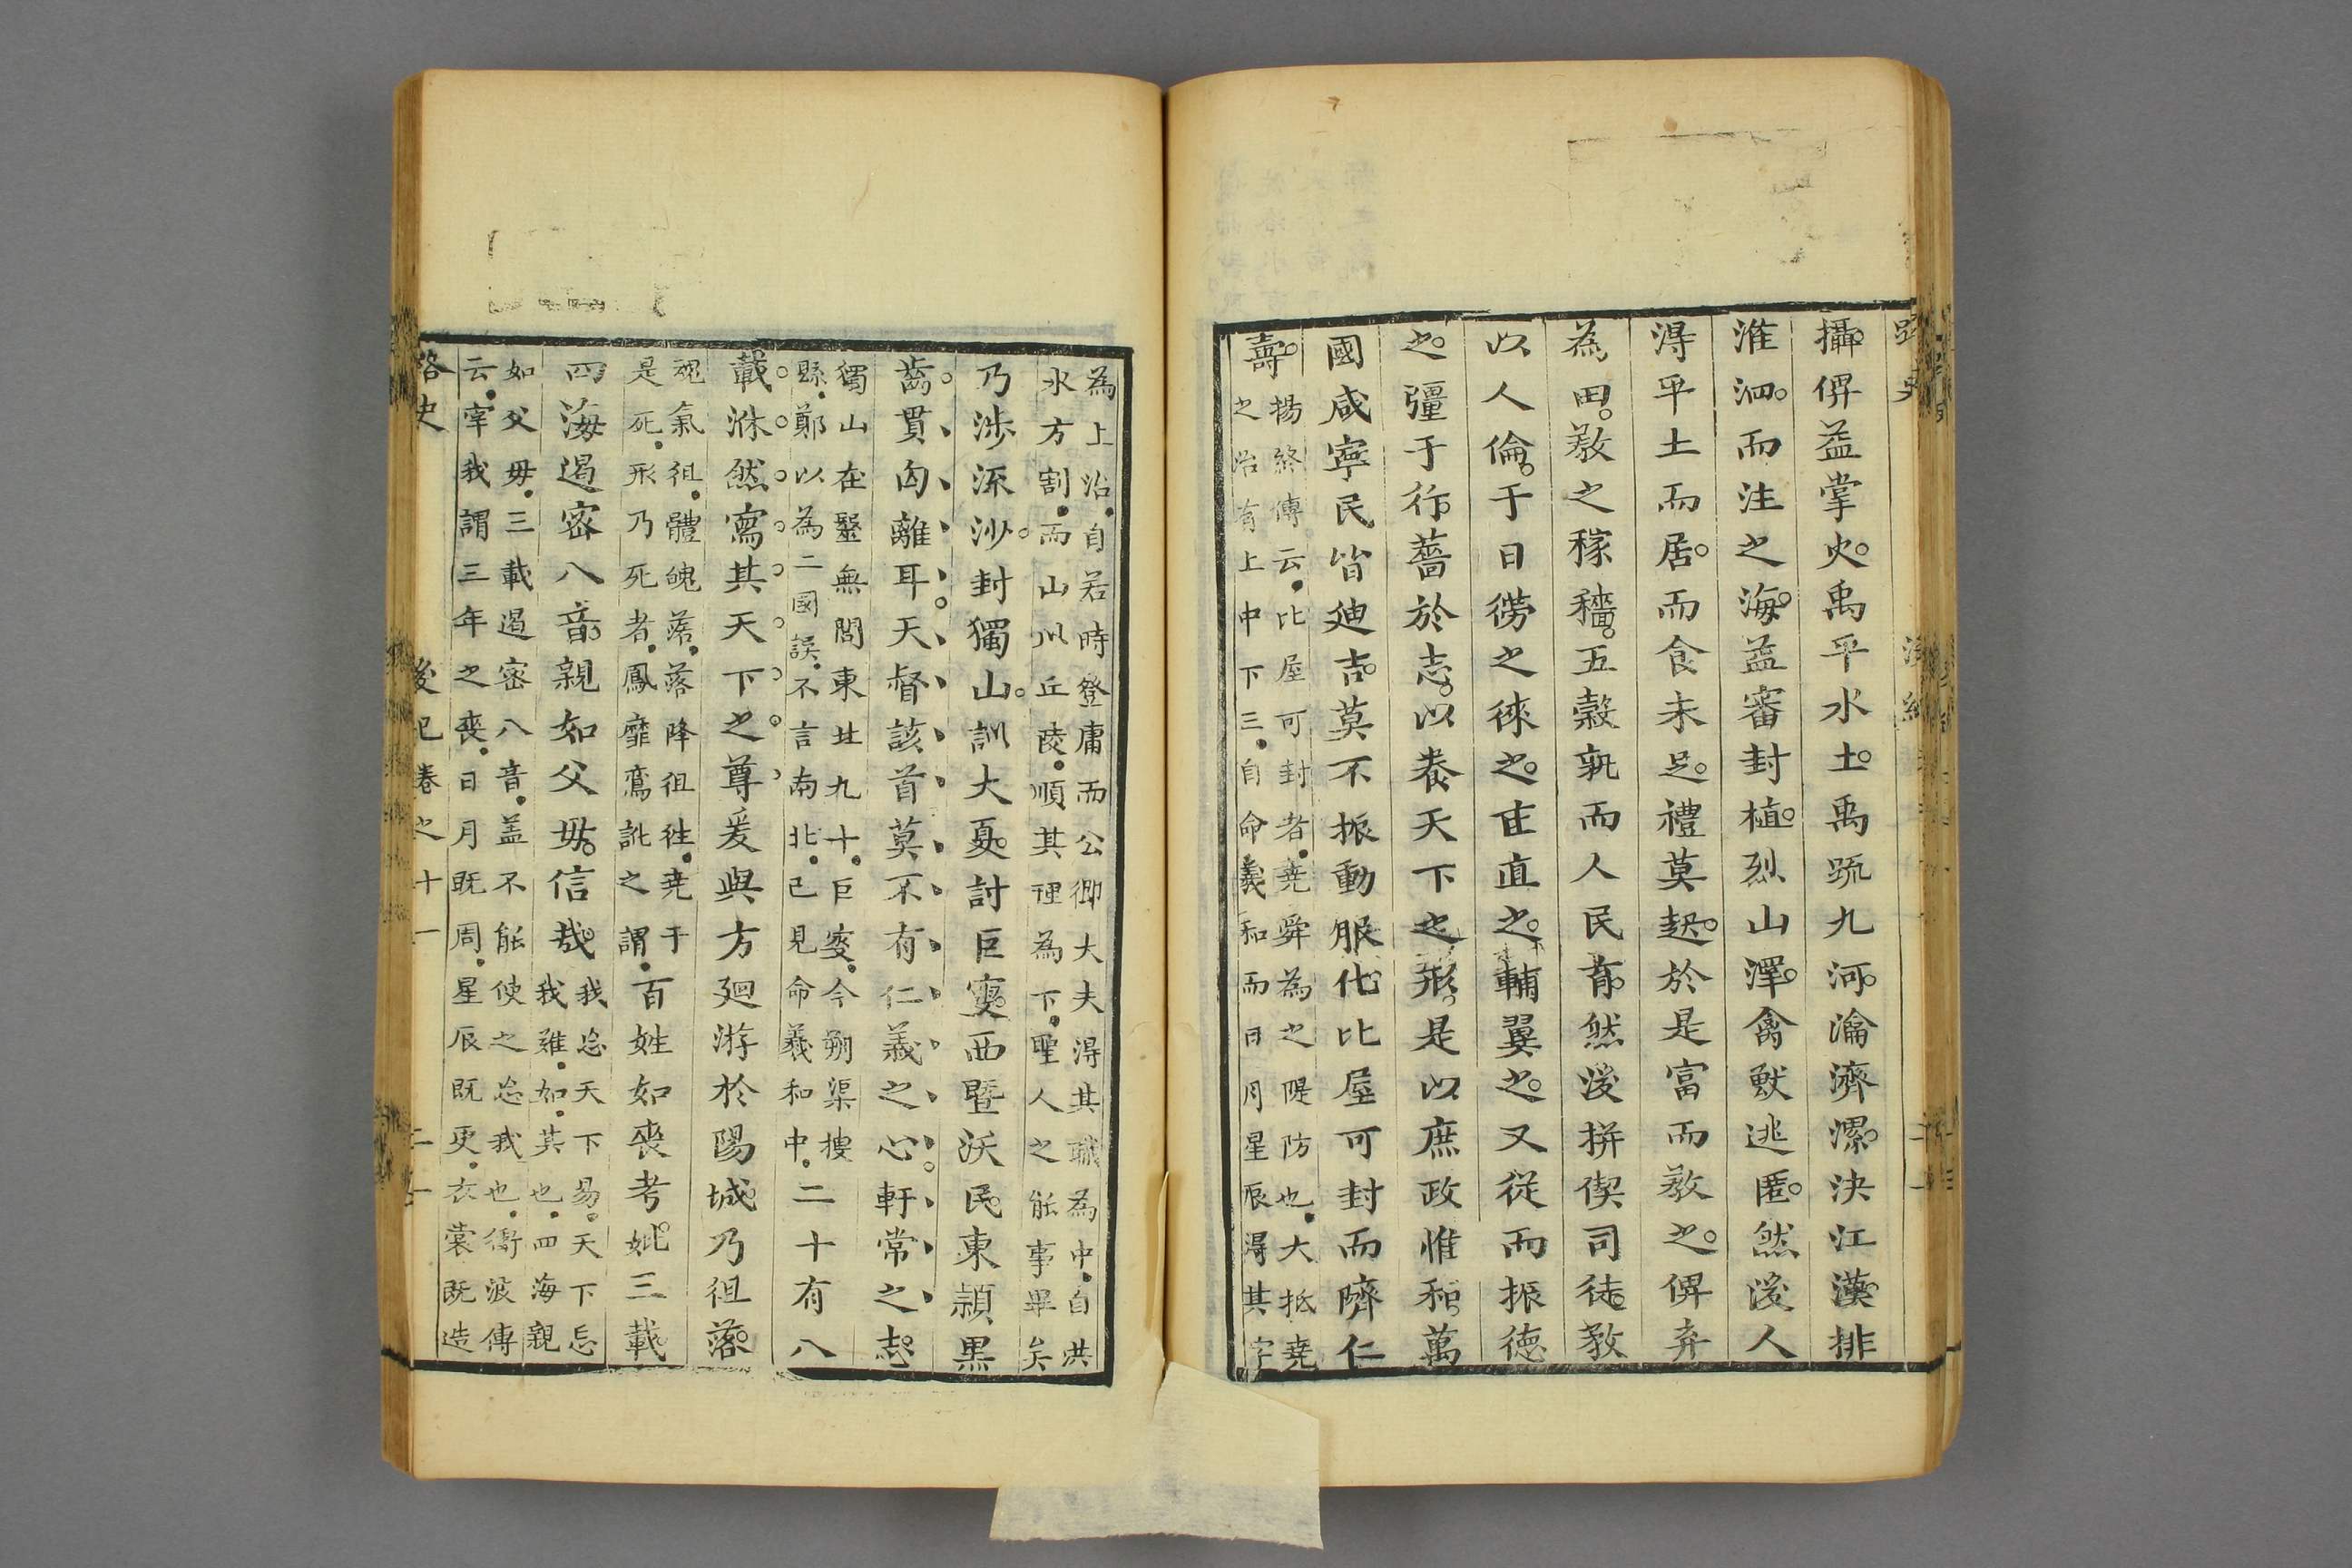 攝俾益掌火禹平水土禹疏九河瀹濟漯決江漢排
淮泗而注之海益審封植烈山澤禽獸逃匿然後人
得平土而居而食未足禮莫起於是富而教之俾弃
為田教之稼穡五穀孰而人民育然後拼偰司徒教
以人倫于日勞之徠之匡直之輔翼之又從而振德
之彊于行薔於志以養天下之形是以庶政惟和萬
國咸寧民皆迪吉莫不振動服化比屋可封而隮仁
壽
揚終傳云比屋可封者堯舜為之隄防也大抵堯
之治有上中下三自命羲和而日月星辰得其字
為上治自若時登庸而公卿大夫得其職為中自洪
水方割而山川丘陵順其理為下聖人之能事畢矣
乃涉流沙封獨山訓大夏討巨窫西暨沃民東顈黑
齒貫匈離耳天督該首莫不有仁義之心軒常之志
獨山在毉無閭東北九十巨窫今朔渠搜
縣鄭以為二國誤不言南北已見命羲和中
二十有八
載洙然寫其天下之尊爰與方廻游於陽城乃徂落
魂氣徂體魄落落降徂往堯于
是死形乃死者鳳靡鸞訛之謂
百姓如喪考妣三載
四海遏密八音親如父毋信哉
我忘天下易天下忘
我難如其也四海親
如父毋三載遏密八音盖不能使之忘我也衝波傳
云宰我謂三年之喪日月既周星辰既更衣裳既造
路史
後紀卷之十一
二十一